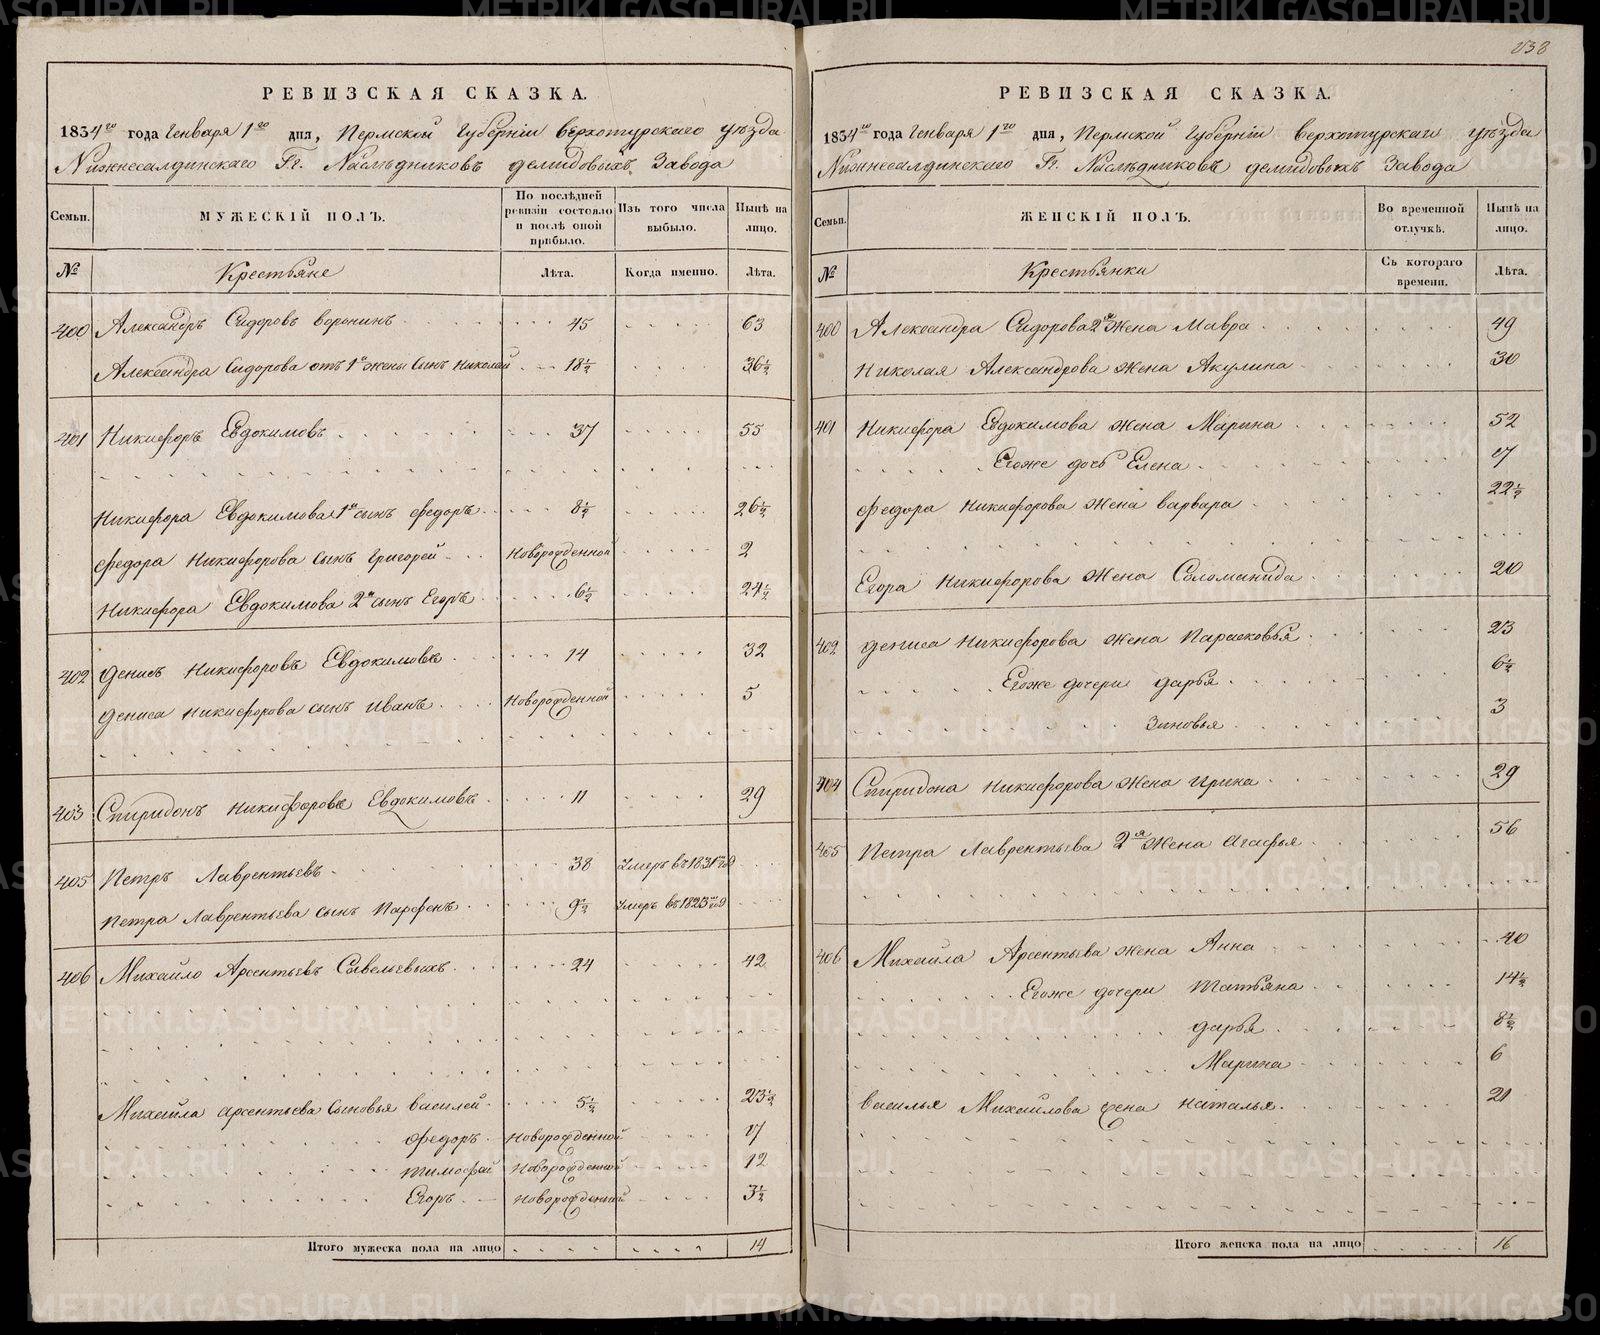 838
РЕВИЗСКАЯ СКАЗКА.
1834го года Генваря 1го дня, Пермской Губернiи Верхотурскаго уѣзда
Нижнесалдинскаго Гг. Наслѣдниковъ Демидовыхъ Завода
Семьи. МУЖЕСКІЙ ПОЛЪ. По послѣдней ревизіи состояло и послѣ оной прибыло. Изъ того числа выбыло. Нынѣ на лицо.
№ Крестьяне Лѣта. Когда именно. Лѣта.
400 Александръ Сидоровъ Воронинъ 45 63
Александра Сидорова отъ 1й жены сынъ Николай 18½ 36½
401 Никифоръ Евдокимовъ 37 55
Никифора Евдокимова 1й сынъ Федоръ 8½ 26½
Федора Никифорова сынъ Григорей Новорожденной 2
Никифора Евдокимова 2й сынъ Егоръ 6½ 24½
402 Денисъ Никифоровъ Евдокимовъ 14 32
Дениса Никифорова сынъ Иванъ Новорожденной 5
403 Спиридонъ Никифоровъ Евдокимовъ 11 29
405 Петръ Лаврентьевъ 38 Умеръ въ 1831 год
Петра Лаврентьева сынъ Парфенъ 9½ Умеръ въ 1823 год
406 Михайло Арсентьевъ Савельевыхъ 24 42
Михайла Арсентьева сыновья Василей 5½ 23½
Федоръ Новорожденной 17
Тимофей Новорожденной 12
Егоръ Новорожденной 3½
Итого мужеска пола на лицо 14
РЕВИЗСКАЯ СКАЗКА.
1834го года Генваря 1го дня, Пермской Губернiи Верхотурскаго уѣзда
Нижнесалдинскаго Гг. Наслѣдниковъ Демидовыхъ Завода
Семьи. ЖЕНСКІЙ ПОЛЪ. Во временной отлучкѣ. Нынѣ на лицо.
№ Крестьянки Съ котораго времени. Лѣта.
400 Александра Сидорова 2я жена Мавра 49
Николая Александрова жена Акулина 30
401 Никифора Евдокимова жена Марина 52
Егоже дочь Елена 17
Федора Никифорова жена Варвара 22½
Егора Никифорова жена Соломанида 20
402 Дениса Никифорова жена Парасковья 23
Егоже дочери Дарья 6½
Зиновья 3
404 Спиридона Никифорова жена Ирина 29
405 Петра Лаврентьева 2я жена Агафья 56
406 Михайла Арсентьева жена Анна 40
Егоже дочери Татьяна 14½
Дарья 8½
Марина 6
Василья Михайлова жена Наталья 21
Итого женска пола на лицо 16
METRIKI.GASO-URAL.RU